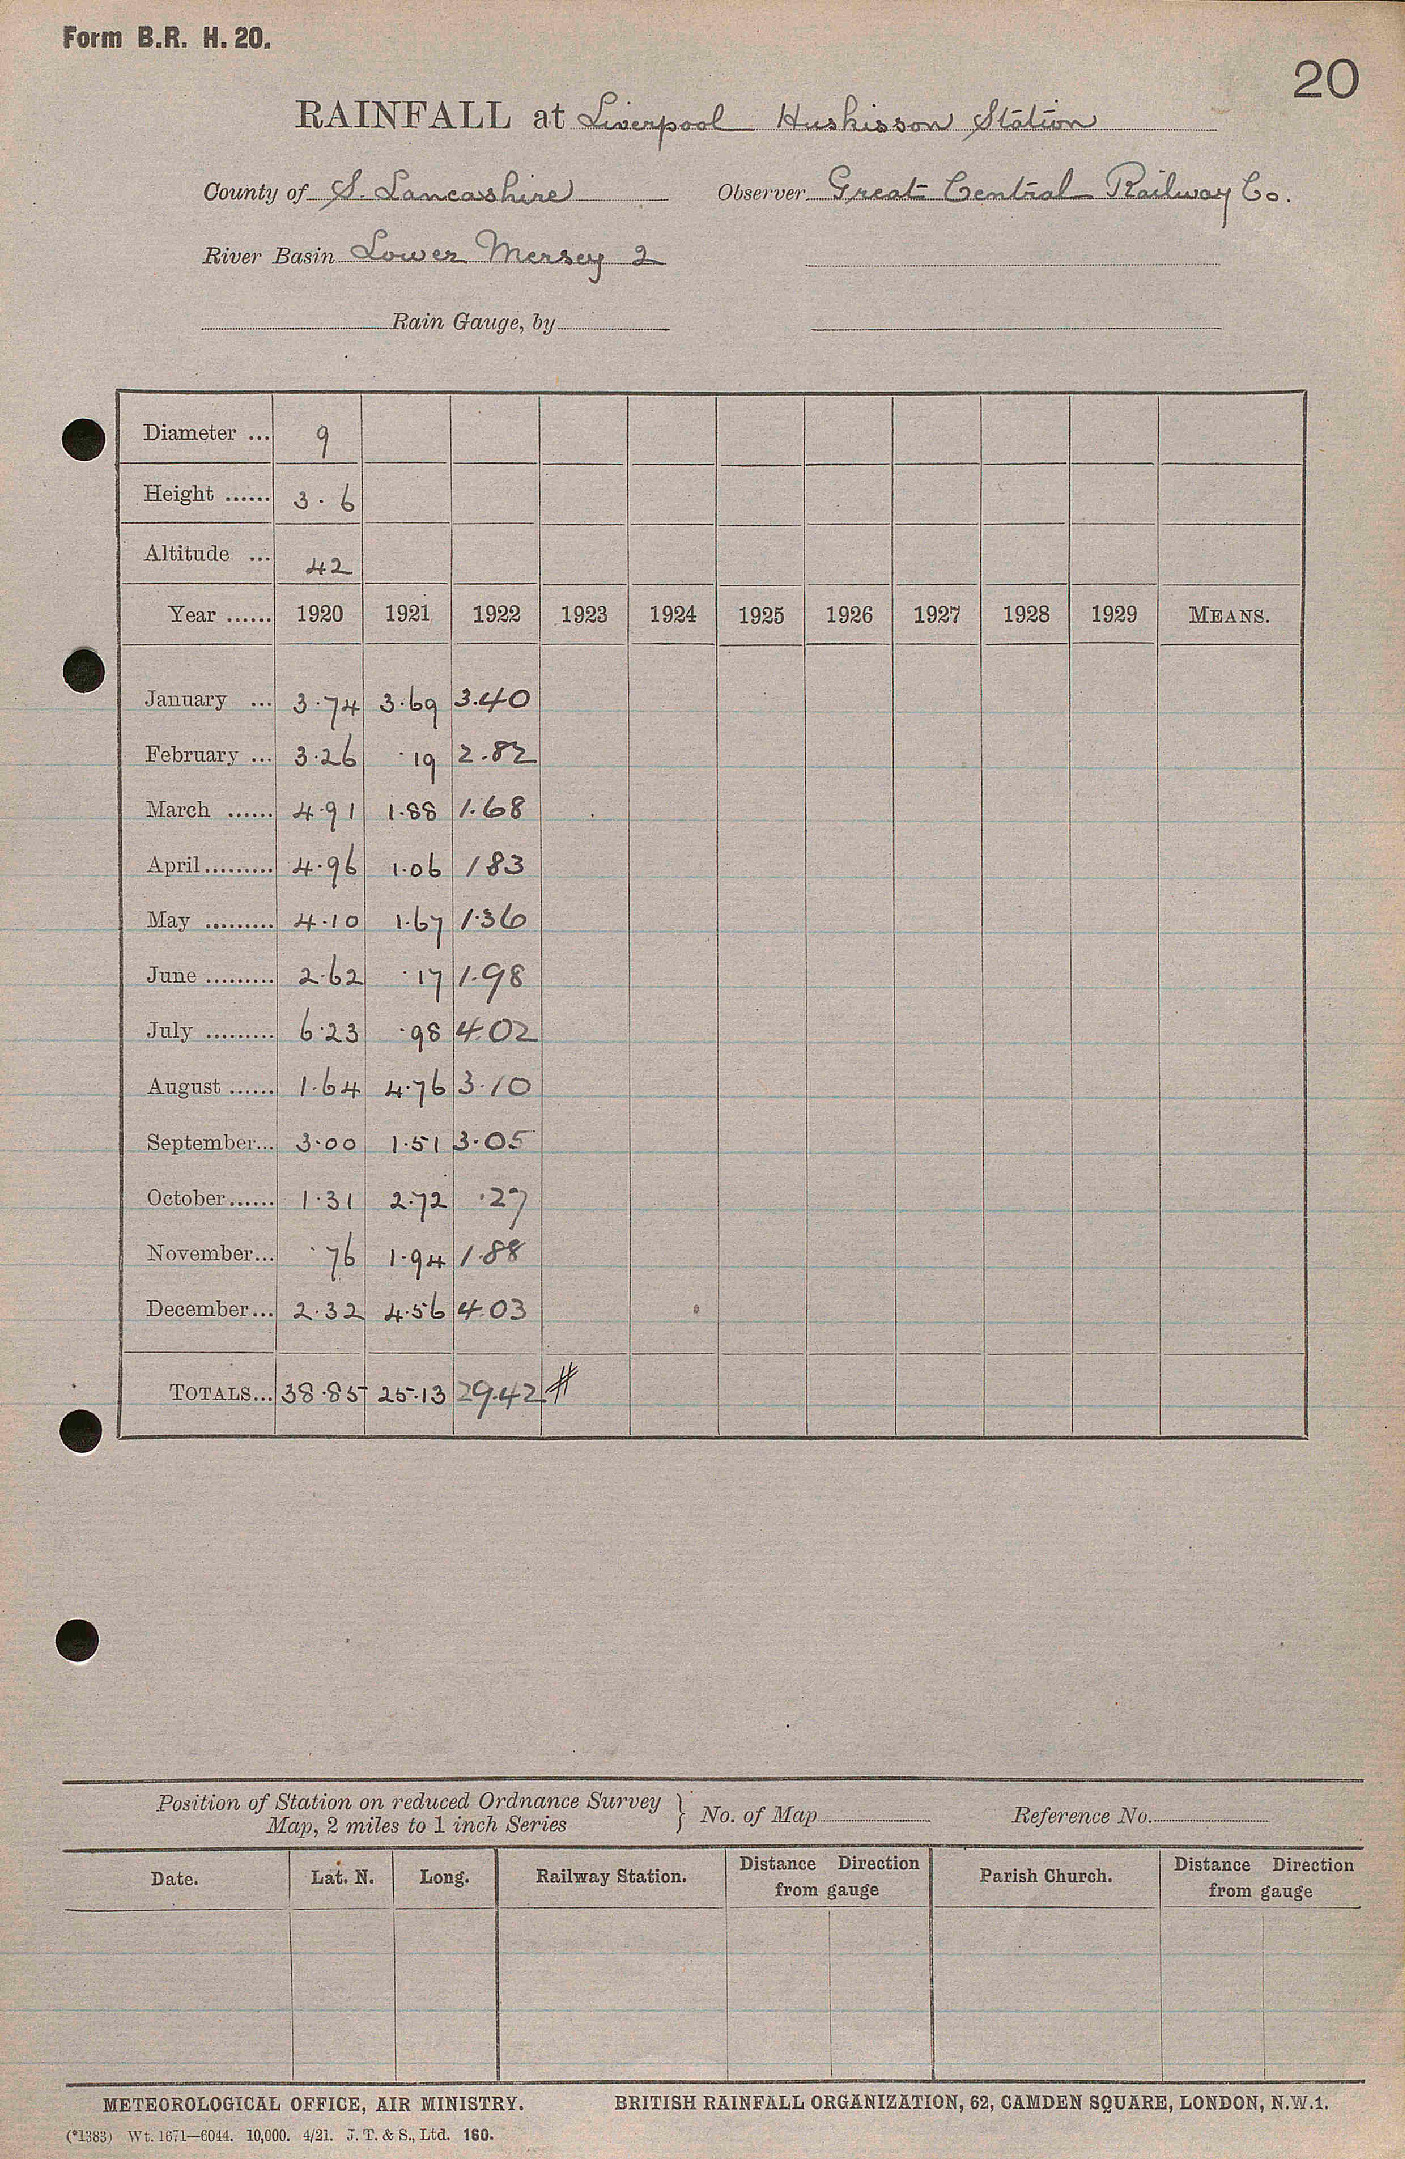 Form B.R. H. 20.
20
RAINFALL at Liverpool Huskisson Station
County of S. Lancashire Observer Great Central Railway Co.
River Basin Lower Mersey 2
Rain Gauge, by
Diameter ... 9
Height ...... 3.6
Altitude ... 42
Year ...... 1920 1921 1922 1923 1924 1925 1926 1927 1928 1929 MEANS.
January ... 3.74 3.69 3.40
February ... 3.26 .19 2.82
March ...... 4.91 1.88 1.68
April ......... 4.96 1.06 1 83
May ......... 4.10 1.67 1.36
June ......... 2.62 .17 1.98
July ......... 6.23 .98 4.02
August ...... 1.64 4.76 3.10
September... 3.00 1.51 3.05
October...... 1.31 2.72 .27
November... .76 1.94 1.88
December... 2.32 4.56 4.03
TOTALS... 38.85 25.13 29.42 #
Position of Station on reduced Ordnance Survey
Map, 2 miles to 1 inch Series } No. of Map Reference No.
Date. Lat. N. Long. Railway Station. Distance Direction from gauge Parish Church. Distance Direction from gauge
METEOROLOGICAL OFFICE, AIR MINISTRY. BRITISH RAINFALL ORGANIZATION, 62, CAMDEN SQUARE, LONDON, N.W.1.
(*1383) Wt. 1671—6044. 10,000. 4/21. J. T. & S., Ltd. 160.